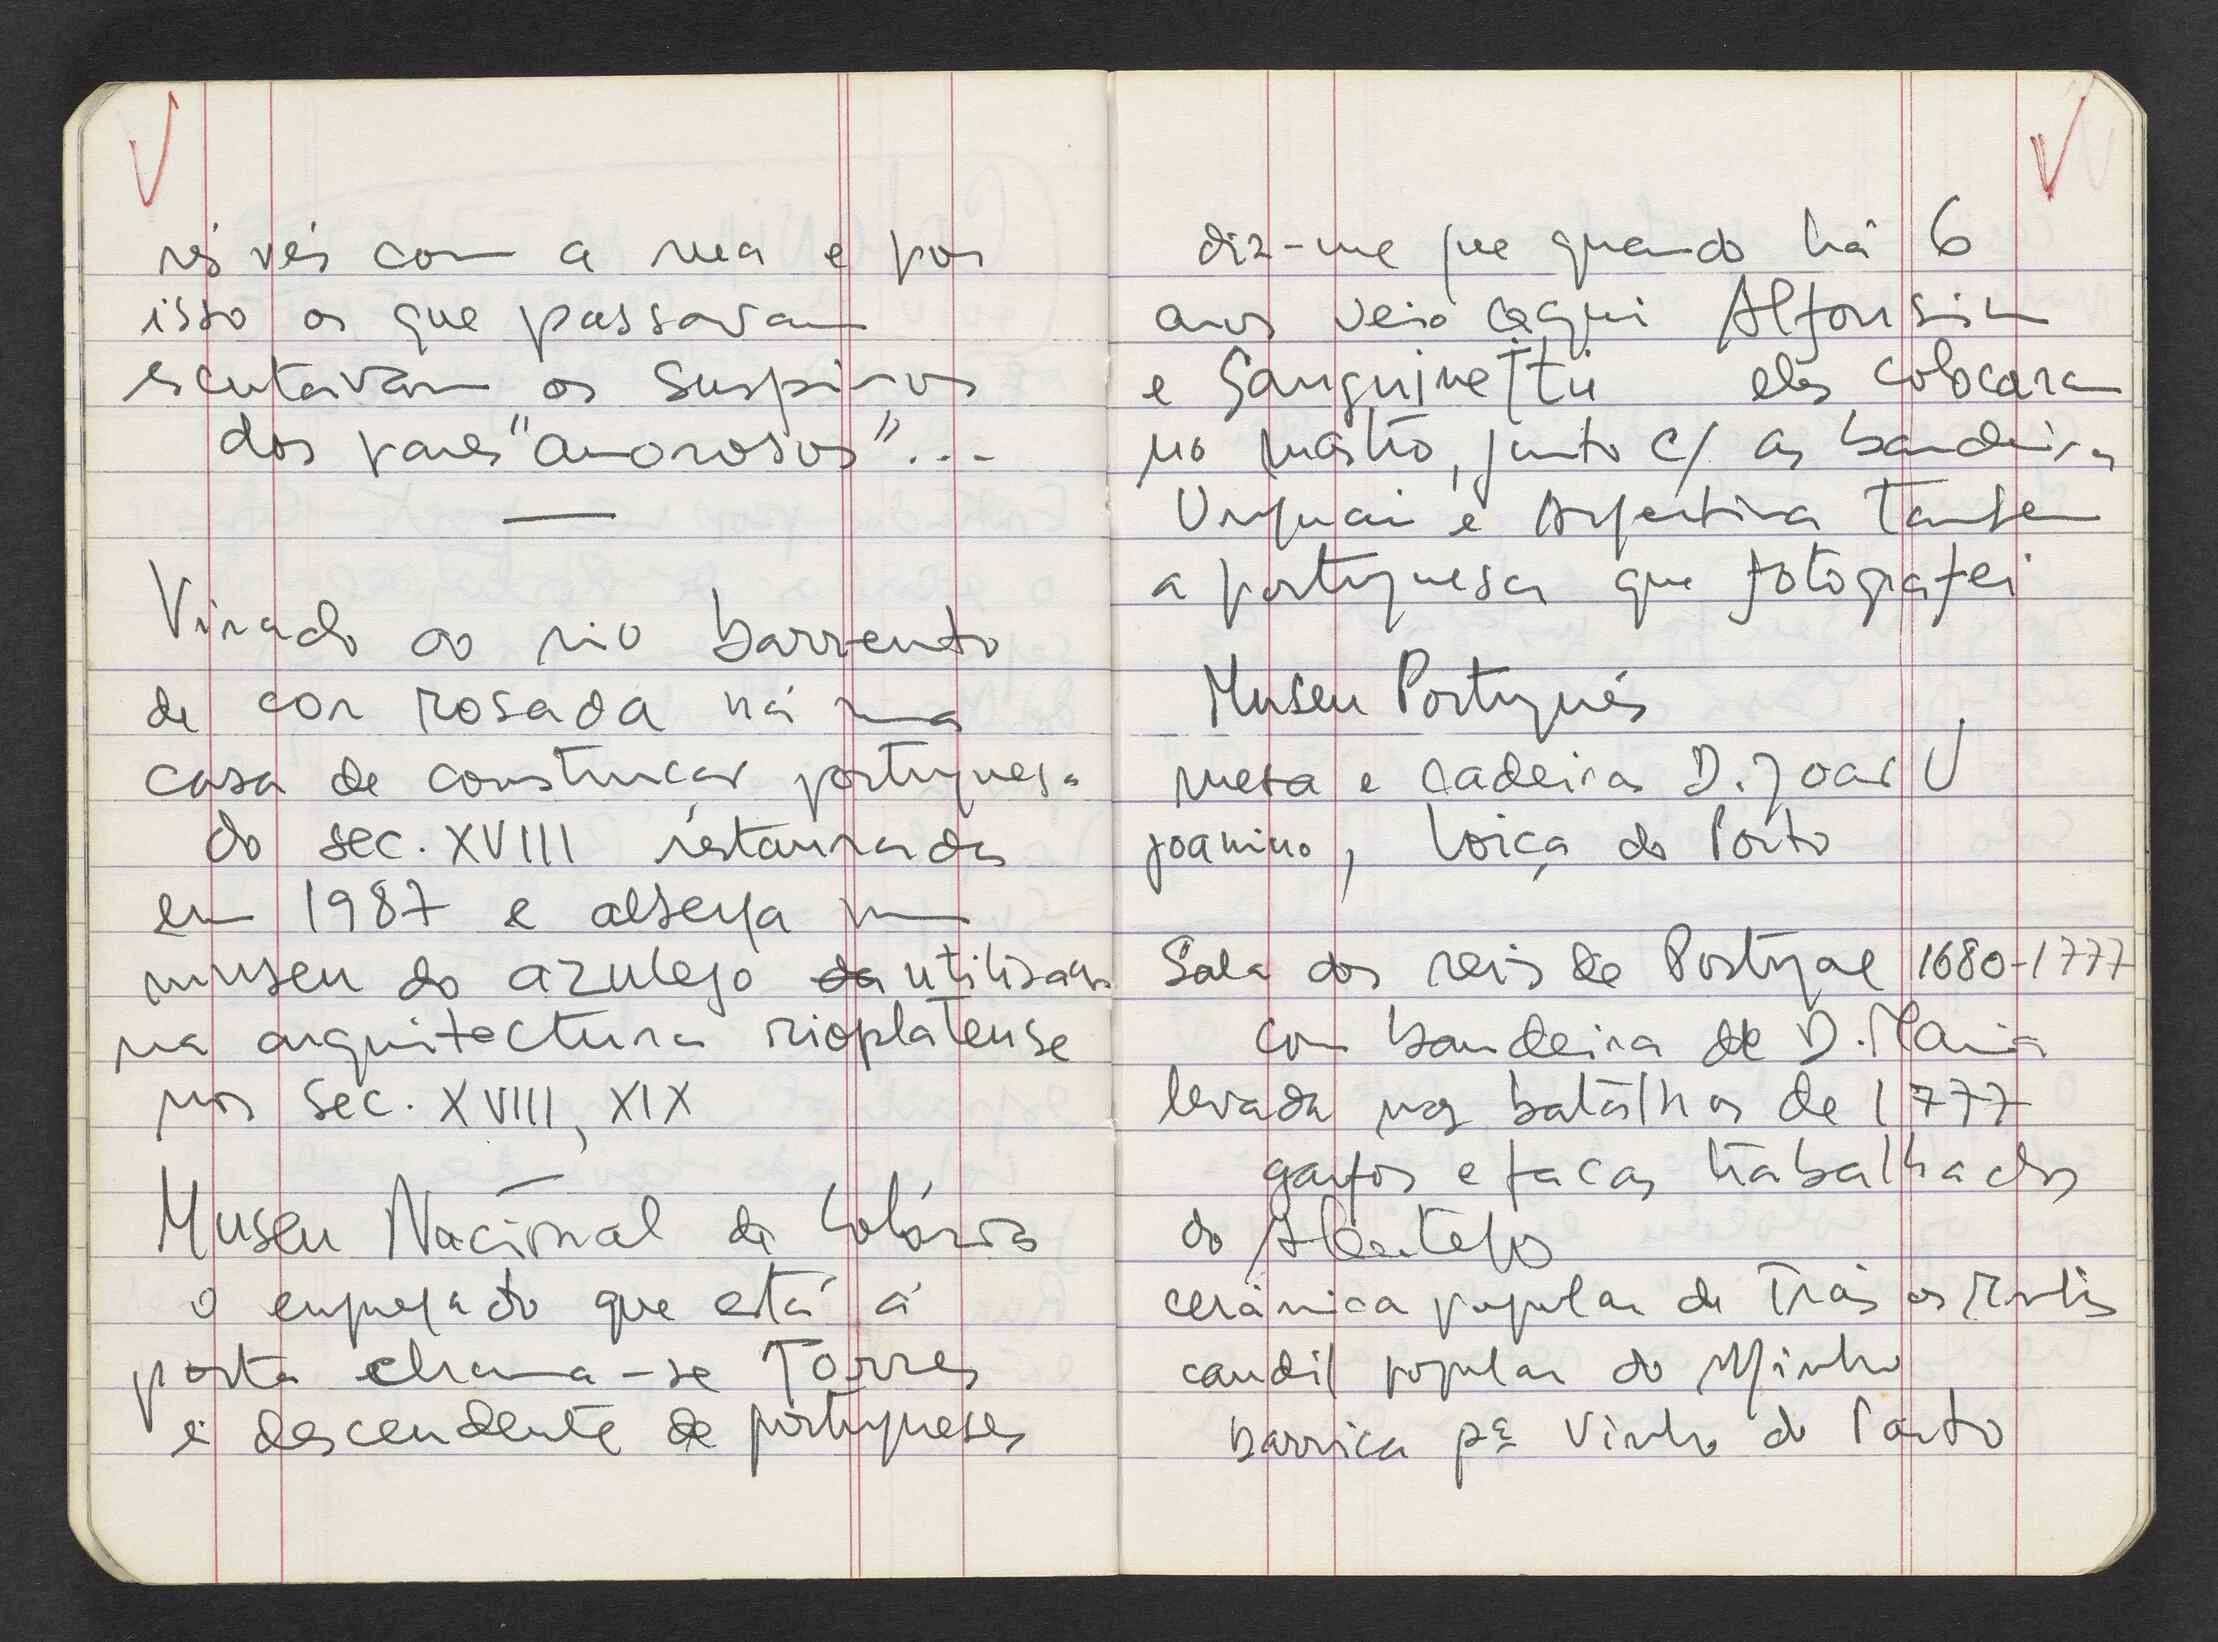 rés vés com a rua e por
isso os que passavam
escutavam os suspiros
dos pares "amorosos"...
Virado ao rio barrento
de cor rosada há uma
casa de construção portuguesa
do sec. XVIII restaurada
em 1987 e alberga um
museu do azulejo da utilizado
na arquitectura rioplatense
nos sec. XVIII, XIX
Museu Nacional da Colónia
o empregado que está á
porta chama-se Torres
é descendente de portugueses
diz-me que quando há 6
anos veio aqui Alfonsin
e Sanguinetti eles colocaram
no mastro, junto c/ as bandeiras
Uruguai e Argentina Tambem
a portuguesa que fotografei
Museu Português
mesa e cadeiras D. Joao V
joanino, loiça do Porto
Sala dos reis de Portugal 1680-1777
com bandeira de D. Maria
levada nas batalhas de 1777
garfos e facas trabalhados
do Alentejo
cerâmica popular de Trás os Montes
candil popular do Minho
barrica pª Vinho do Porto